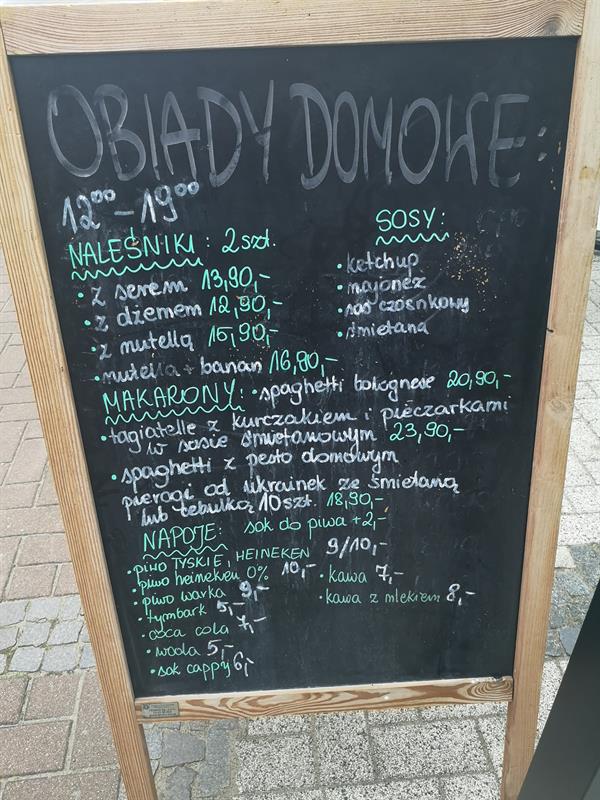 OBIADY DOMOWE:
12⁰⁰ - 19⁰⁰
NALEŚNIKI: 2szt.
• z serem 13,90,-
• z dżemem 12,90,-
• z nutellą 15,90,-
• nutella + banan 16,90,-
SOSY:
• ketchup
• majonez
• sos czosnkowy
• śmietana
MAKARONY: • spaghetti bolognese 20,90,-
• tagiatelle z kurczakiem i pieczarkami
w sosie śmietanowym 23,90,-
• spaghetti z pesto domowym
pierogi od ukrainek ze śmietaną
lub cebulką 10szt. 18,90,-
NAPOJE: sok do piwa +2,-
• piwo TYSKIE, HEINEKEN 9/10,-
• piwo heineken 0% 10,-
• piwo warka 9,-
• tymbark 5,-
• coca cola 7,-
• woda 5,-
• sok cappy 6,-
• kawa 7,-
• kawa z mlekiem 8,-